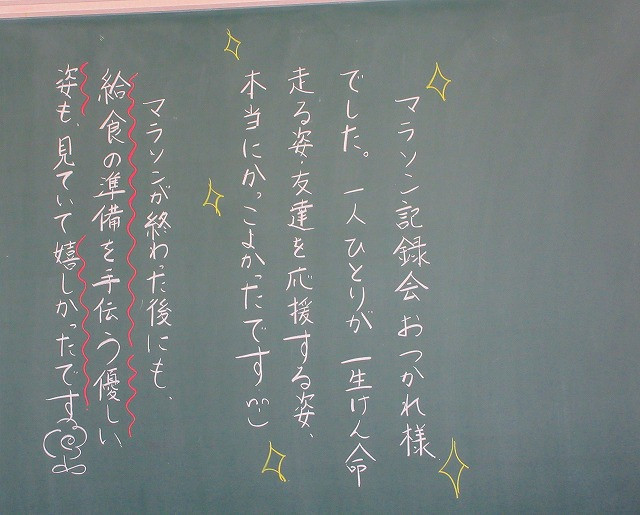 マラソン記録会おつかれ様
でした。一人ひとりが一生けん命
走る姿、友達を応援する姿、
本当にかっこよかったです
マラソンが終わった後にも、
給食の準備を手伝う優しい
姿も、見ていて嬉しかったです